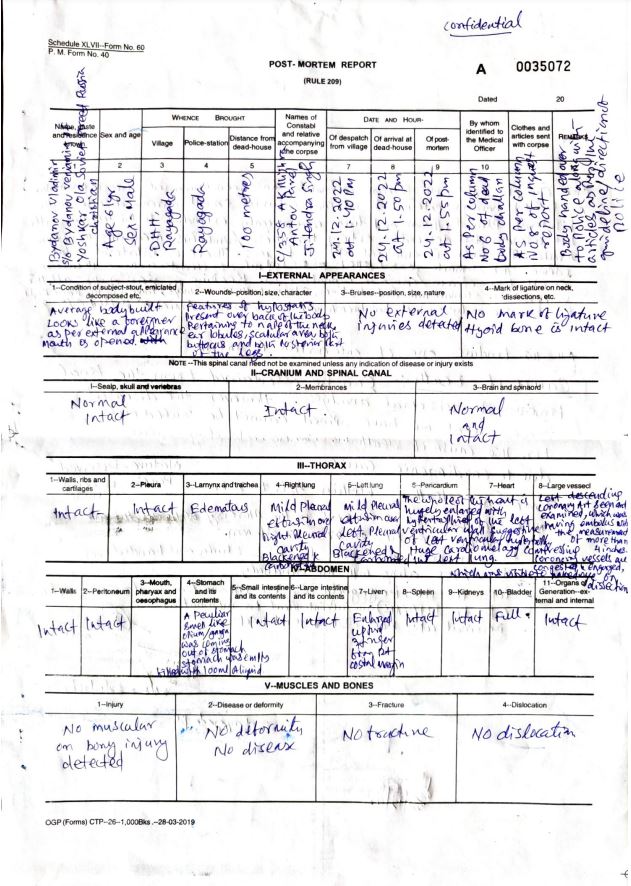 confidential
Schedule XLVII--Form No. 60
P. M. Form No. 40
POST-MORTEM REPORT
(RULE 209)
A 0035072
Dated 20
Name, caste and residence
Sex and age
WHENCE BROUGHT
Village
Police-station
Distance from dead-house
Names of Constabl and relative accompanying the corpse
DATE AND HOUR-
Of despatch from village
Of arrival at dead-house
Of post-mortem
By whom identified to the Medical Officer
Clothes and articles sent with corpse
REMARKS
2 3 4 5 7 8 9 10
Bydanov Vladimir
S/o Bydanov
Yoshkar Ola Soviet Russia
Christian
Age-61yr
Sex-Male
D.H.H.
Rayagada
Rayagada
100 metres
C/358
Jitendra Singh
24.12.2022
at 1.40 pm
24.12.2022
at 1.50 pm
24.12.2022
at 1.55 pm
As Per column
No 6 of dead
body challan
As Per column
No 8 of inquest
report
Body handed over
to police
guideline/direction of
police
I--EXTERNAL APPEARANCES
1--Condition of subject-stout, emiciated decomposed etc.
2--Wounds--position, size, character
3--Bruises--position, size, nature
4--Mark of ligature on neck, dissections, etc.
Average bodybuilt
Looks like a foreigner
as per external appearance
Mouth is opened.
Features of hypostasis
Present over back of the body
Pertaining to nape of the neck
ear lobules, scapular area both
buttocks and both posterior part
of the legs.
No external
injuries detected
No mark of ligature
Hyoid bone is intact
NOTE--This spinal canal need not be examined unless any indication of disease or injury exists
II--CRANIUM AND SPINAL CANAL
1--Sealp, skull and vertebras
2--Membrances
3--Brain and spinaord
Normal
Intact
Intact.
Normal
and
Intact
III--THORAX
1--Walls, ribs and cartilages
2--Pleura
3--Larnynx and trachea
4--Right lung
5--Left lung
6--Pericardium
7--Heart
8--Large vessecl
Intact
Intact
Edematous
Mild Pleural
effusion over
right Pleural
cavity
Blackened &
Mild Pleural
effusion over
left Pleural
cavity
Blackened
The whole left heart is
hugely enlarged with
hypertrophied of the left
ventricular wall suggestive
of left ventricular hypertrophy
Huge cardiomegaly compressing
the left lung.
Left descending
coronary Art
examined, which was
having embolus with
the measurement
of more than
4 inches.
coronary vessels are
congested & engorged
which was visible
on dissection
IV--ABDOMEN
1--Walls
2--Peritoneum
3--Mouth, pharyax and oesophagus
4--Stomach and its contents
5--Small intestine and its contents
6--Large intestine and its contents
7--Liver
8--Spleen
9--Kidneys
10--Bladder
11--Organs of Generation--external and internal
Intact
Intact
A Peculiar
smell like
opium/ganja
was coming
out of stomach
stomach was empty
filled with 100ml of liquid
Intact
Intact
Enlarged
upto
finger
from Rt
costal margin
Intact
Intact
Full
Intact
V--MUSCLES AND BONES
1--Injury
2--Disease or deformity
3--Fracture
4--Dislocation
No muscular
or bony injury
detected
No deformity
No disease
No fracture
No dislocation
OGP (Forms) CTP--26--1,000Bks.--28-03-2019